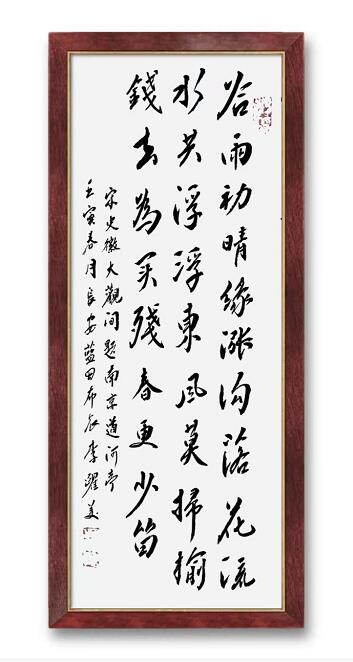 谷雨初晴綠漲沟落花流
水共浮浮東風莫掃榆
錢去為买殘春更少留
宋史徽大觀间題南京道河亭
壬寅春月长安蓝田布衣李躍美